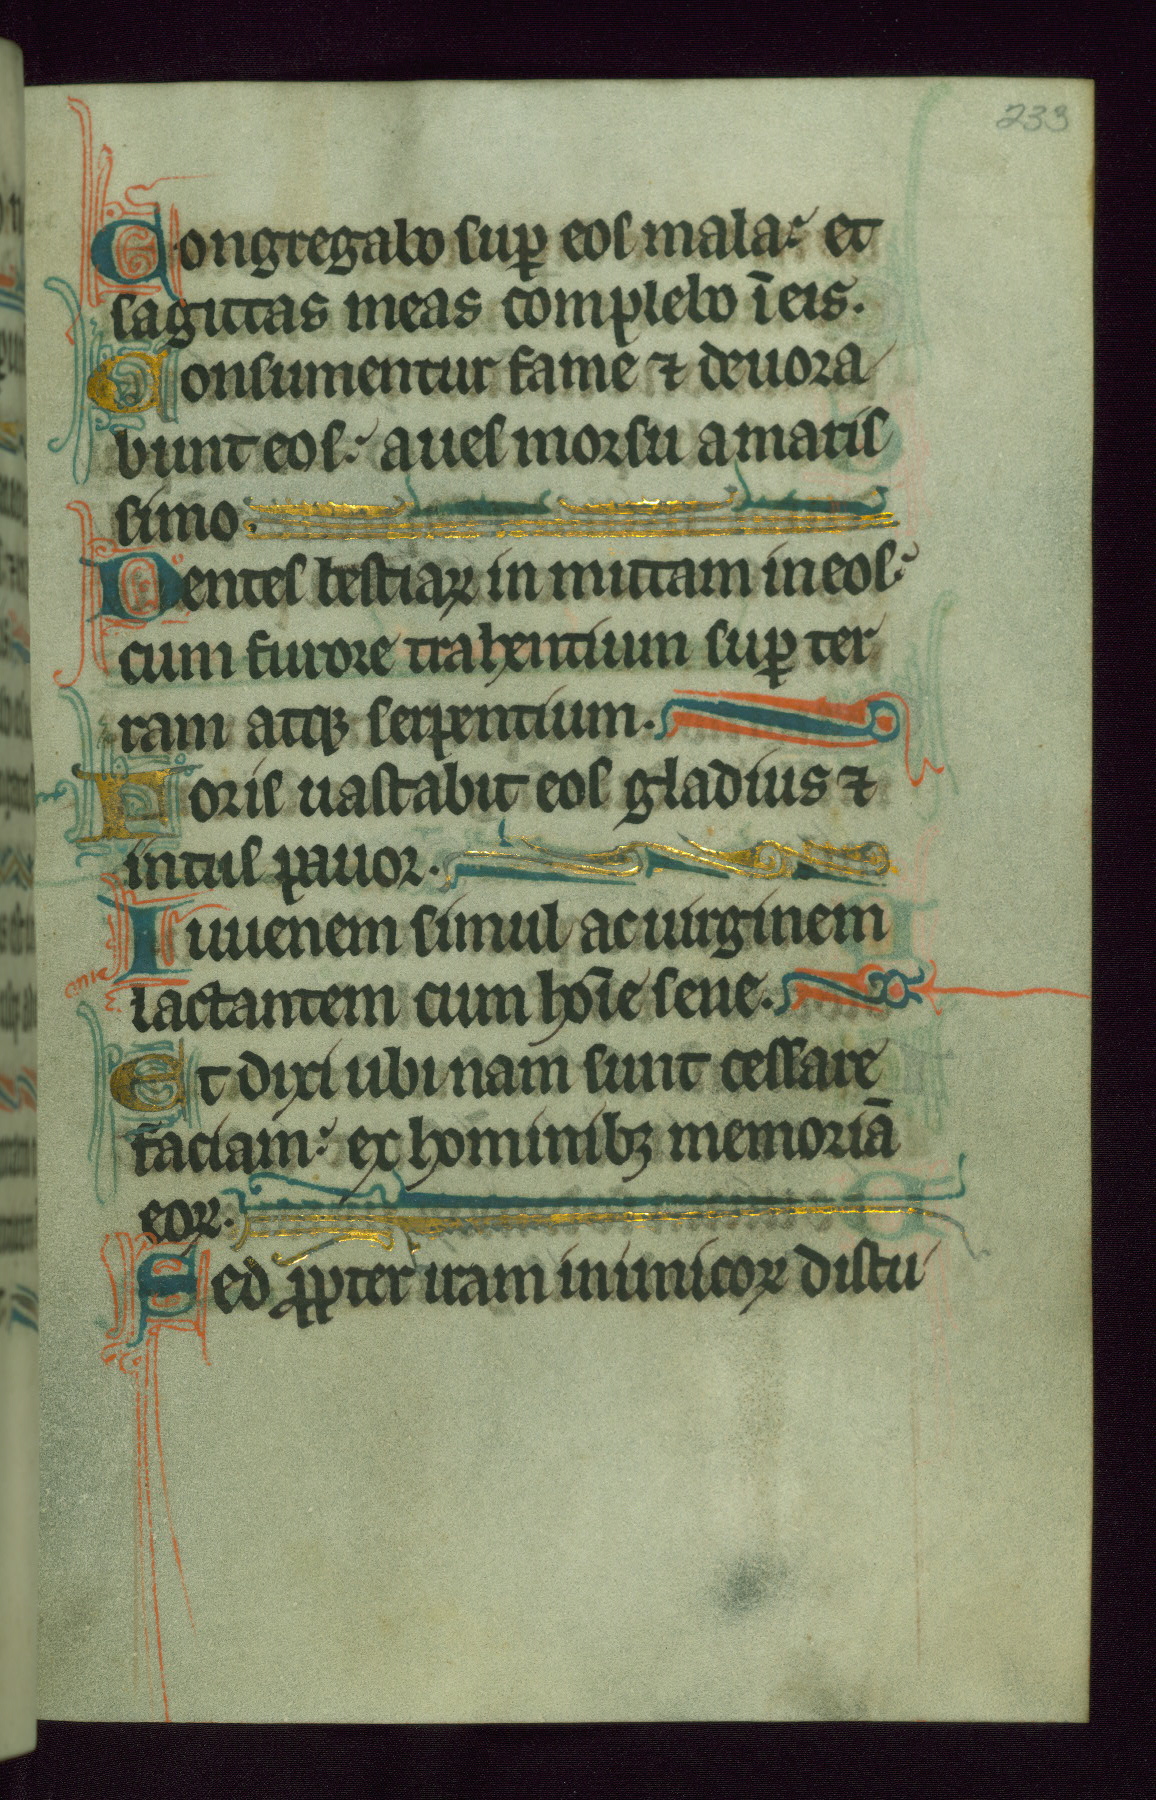 233
Congregabo sup̲ eos mala: et
sagittas meas complebo ī eis.
Consumentur fame ⁊ deuora
bunt eos: aues morsu amaris
simo.
Dentes bestiaꝝ inmittam in eos:
cum furore trahentium suꝑ ter
ram atqꝫ serpentium.
Foris uastabit eos gladius ⁊
intus pauor.
Iuuenem simul ac uirginem
lactantem cum hoīe sene.
Et dixi ubi nam sunt cessare
faciam: ex hominibꝫ memoriā
eoꝝ.
Sed ꝓpter iram inimicoꝝ distu